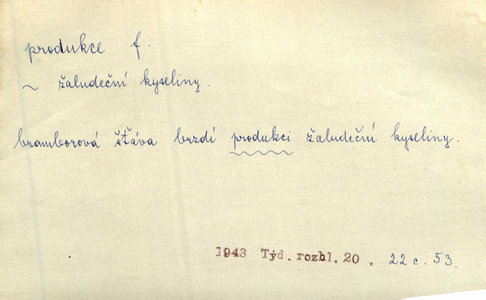 produkce f.
~ žaludeční kyseliny.
bramborová šťáva brzdí produkci žaludeční kyseliny.
1943 Týd. rozhl. 20. 22 c. 53.